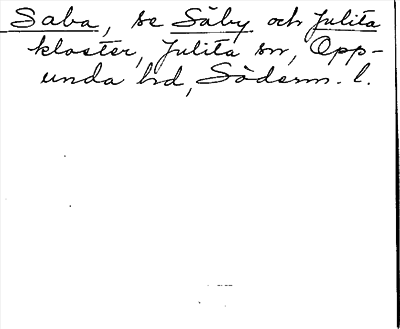 Saba, se Säby och Julita
kloster, Julita sn, Opp-
unda hd, Söderm. l.